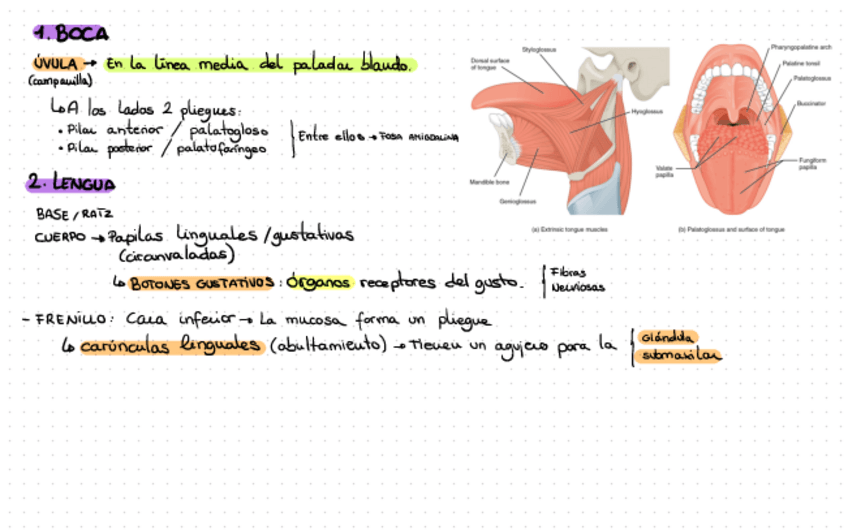 1. BOCA
ÚVULA → En la línea media del paladar blando.
(campanilla)
↳ A los lados 2 pliegues:
• Pilar anterior / palatogloso
• Pilar posterior / palatofaríngeo
Entre ellos → FOSA AMIGDALINA
2. LENGUA
BASE / RAÍZ
CUERPO → Papilas linguales / gustativas
(circunvaladas)
↳ BOTONES GUSTATIVOS: órganos receptores del gusto.
Fibras
Nerviosas
- FRENILLO: Cara inferior → La mucosa forma un pliegue
↳ carúnculas linguales (abultamiento) → Tienen un agujero para la
Glándula
submaxilar
Styloglossus
Dorsal surface
of tongue
Hyoglossus
Mandible bone
Genioglossus
(a) Extrinsic tongue muscles
Pharyngopalatine arch
Palatine tonsil
Palatoglossus
Buccinator
Valate
papilla
Fungiform
papilla
(b) Palatoglossus and surface of tongue